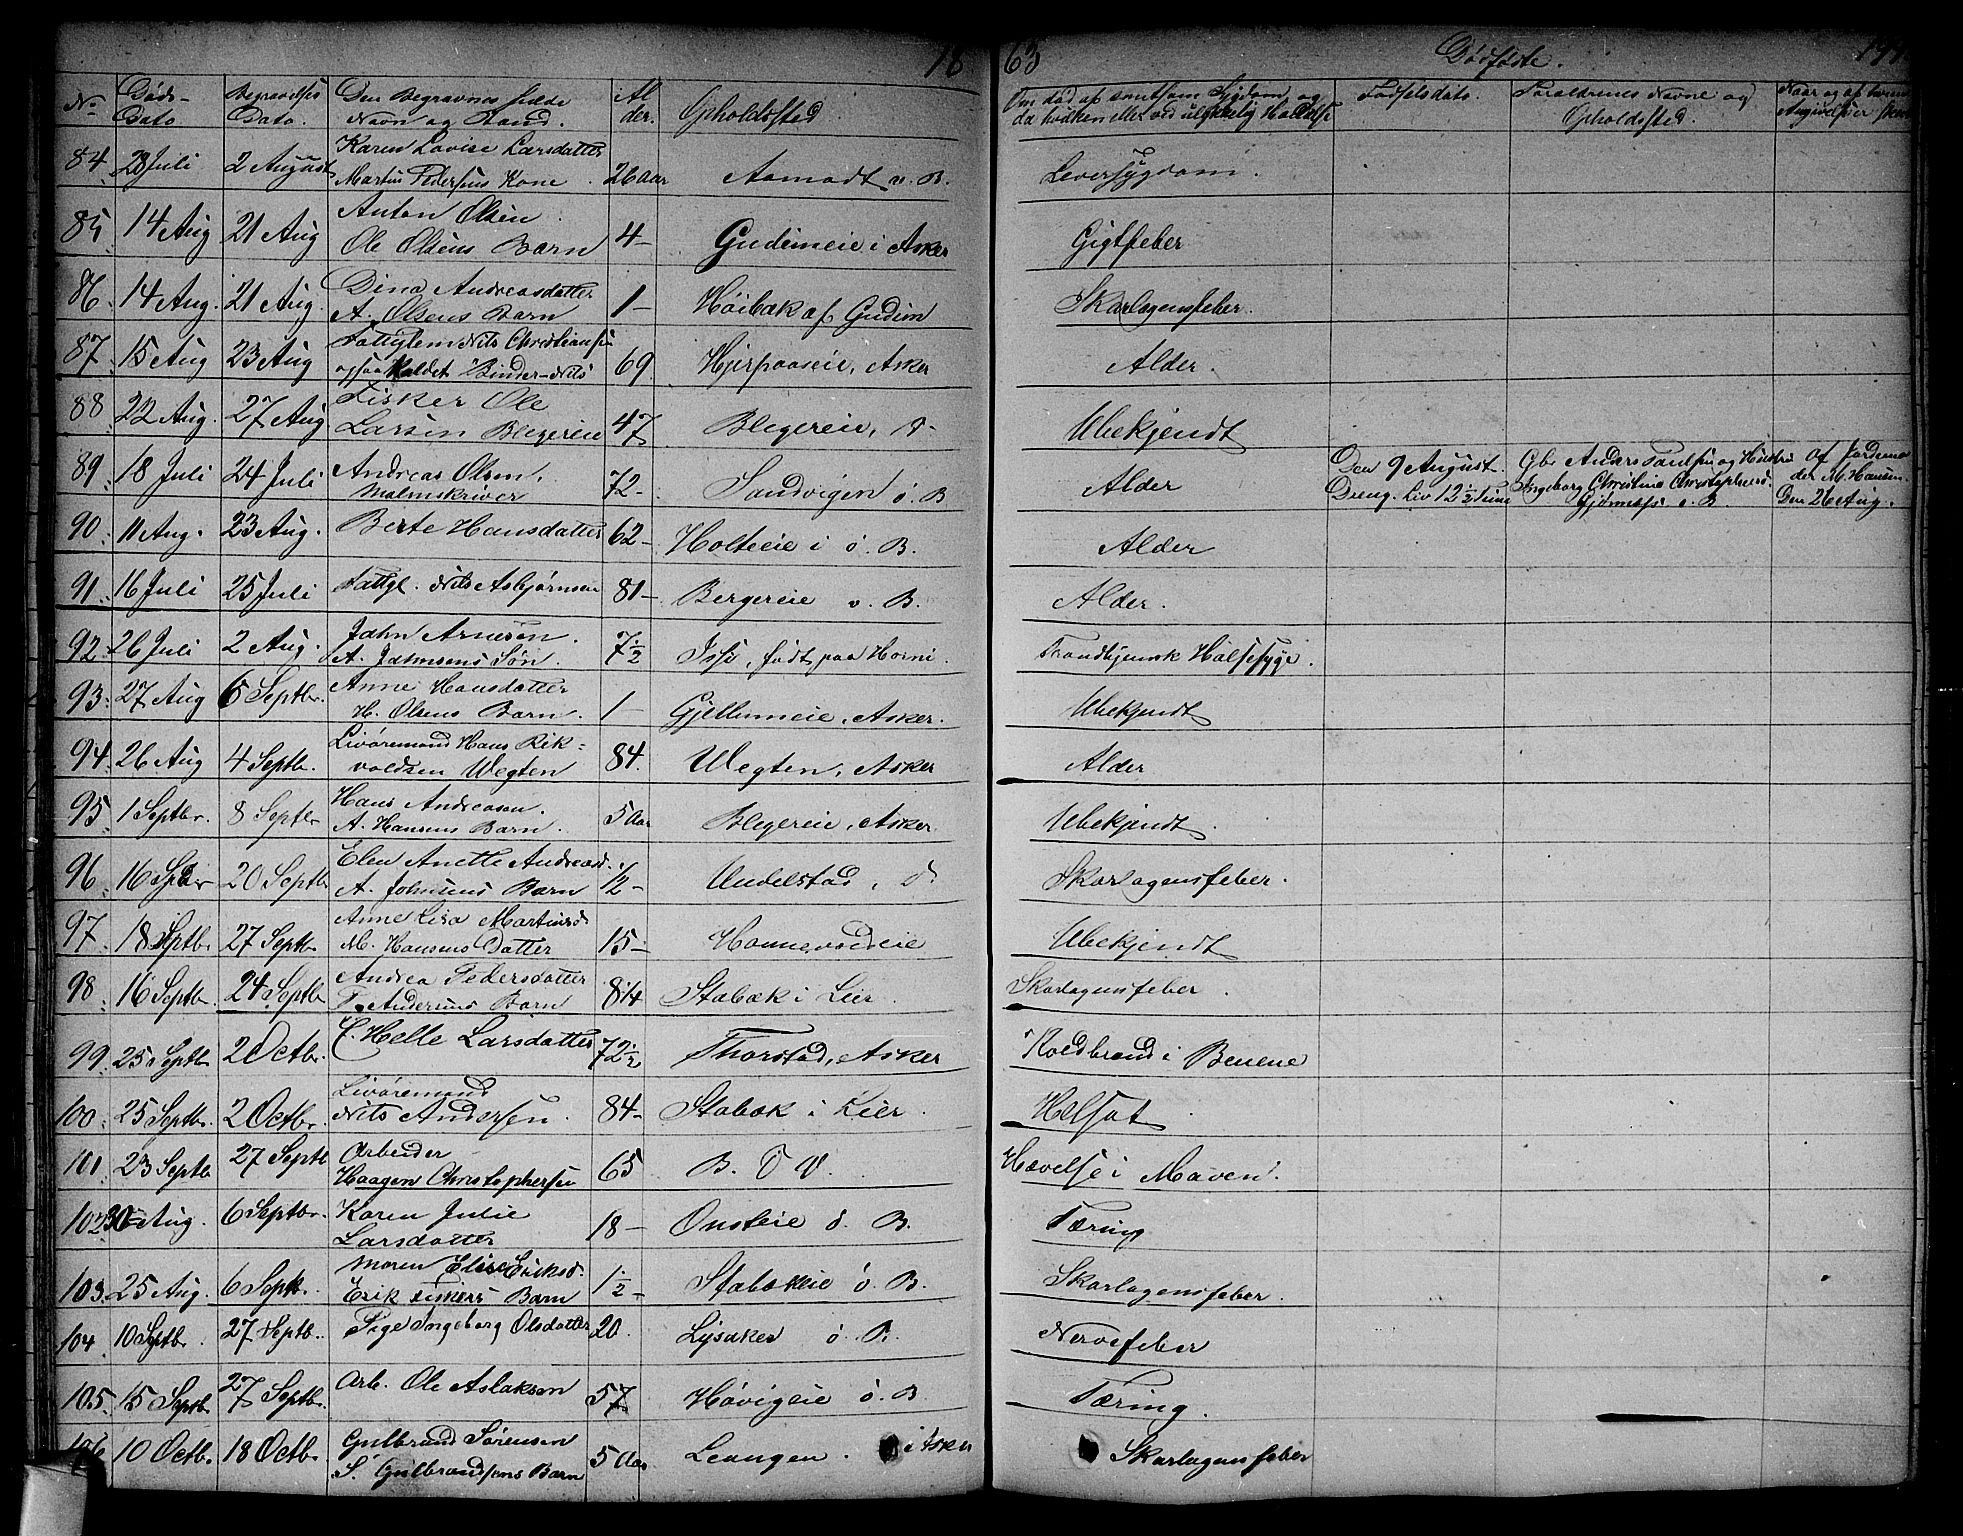 1863 Dødfødte.
No Døds-Dato Begravelses Dato. Den Begravnes fulde Navn og Stand. Al-der. Opholdssted Om død af smitsom Sygdom og da hvilken eller ved ulykkelig Hændelse Fødselsdato. Forældrenes Navne og Opholdssted. Naar og af hvem Angivelsen
84 28 Juli 2 August Karen Lovise Larsdatter
Martin Pedersens Kone 26 Aar Aamodt v. B. Leversygdom.
85 14 Aug 21 Aug Anton Olsen
Ole Olsens Barn 4 - Gudimeie i Asker Gigtfeber
86 14 Aug. 21 Aug. Dina Andreasdatter
A. Olsens Barn 1 - Høibak af Gudim Skarlagensfeber.
87 15 Aug 23 Aug Fattiglem Nils Christiansen
ogsaa kaldet Binder-Nils 69. Hjerpaaseie, Asker Alder.
88 22 Aug. 27 Aug Fisker Ole
Larsen Blegereie 47 Blegereie, d- Ubekjendt
89 18 Juli 24 Juli Andreas Olsen.
Malmskriver 72- Sandvigen ø. B Alder Den 9 August. Gbr Anders Paulsen og Hustru af Jordemo
Dreng. Liv 12½ Time Ingeborg Christine Christophersd. der M. Hansen.
Gjønnes ø. B. Den 26 Aug.
90. 11 Aug. 23 Aug. Berte Hansdatter 62- Holteeie i ø. B. Alder
91. 16 Juli 25 Juli Fattigl. Nils Asbjørnsen 81- Bergereie v. B. Alder.
92 26 Juli 2 Aug. Jahn Arnesen.
A. Jahnsens Søn. 7½ Issi, født paa Horni. Trondhjemsk Halsesyge.
93. 27 Aug 6 Septbr. Anne Hansdatter
H. Olsens Barn. 1 - Gjellumeie, Asker. Ubekjendt
94. 26 Aug 4 Septb. Livøremand Hans Rik-
voldsen Wegten 84. Wegten, Asker Alder
95 1 Septbr. 8 Septbr Hans Andreasen.
A. Hansens Barn. 5 Aar Blegereie, Asker Ubekjendt.
96 16 Septbr 20 Septbr Elen Anette Andreasd.
A. Johnsens Barn ½- Undelstad, d. Skarlagensfeber.
97. 18 Septb. 27 Septbr Anne Lisa Martinsd
M. Hansens Datter 15- Hannevoldeie Ubekjendt
98 16 Septbr. 24 Septbr Andrea Pedersdatter
P. Andersens Barn 8¼ Stabæk i Leier. Skarlagensfeber.
99. 25 Septbr 2 Octbr. Helle Larsdatter 72½ Thorstad, Asker Koldbrand i Benene
100. 25 Septbr. 2 Octbr. Livøremand
Nils Andersen. 84- Stabæk i Leier. Helsot
101 23 Septb 27 Septb Arbeider
Haagen Christophersen 65 B. Ø V. Hævelse i Maven.
102 30 Aug. 6 Septbr. Karen Julie
Larsdatter 18- Onsteie ø. B. Tæring
103. 25 Aug. 6 Septb. Maren Elise Eriksd.
Erik Barn 1½- Stabækeie ø. B. Skarlagensfeber.
104. 10 Septbr. 27 Septb. Pige Ingeborg Olsdatter 20. Lysaker ø. B. Nervefeber
105. 15 Septb. 27 Septbr. Arb. Ole Aslaksen 57 Høvigeie ø. B Tæring.
106 10 Octb. 18 Octb. Gulbrand Sørensen
S. Gulbrandsens Barn 5 Aar Leangen. i Asker Skarlagensfeber